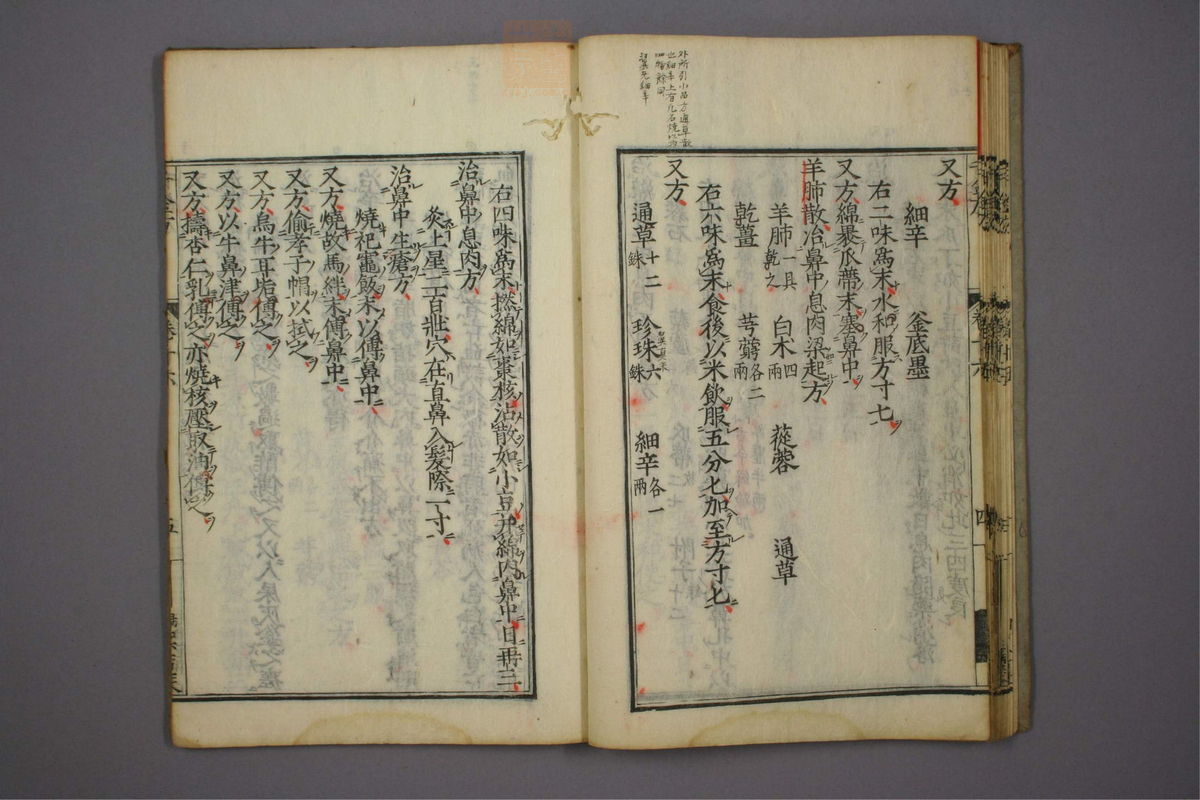 外所引小品方通草散
也細辛上有凡石燒以爲
四物餘同
又方
細辛 釜底墨
右二味爲末水和服方寸匕
又方綿裹瓜蔕末塞鼻中
羊肺散治鼻中息肉梁起方
羊肺一具乾之 白朮四兩 蓯蓉 通草
乾薑 芎藭各二兩
右六味爲末食後以米飲服五分匕加至方寸匕
又方
通草十二銖 珍珠六銖 細辛各一兩
右四味爲末撚綿如棗核沾散如小豆并綿内鼻中日再三
治鼻中息肉方
灸上星二百壯穴在直鼻入髮際一寸
治鼻中生瘡方
燒祀竈飯末以傅鼻中
又方燒故馬絆末傅鼻中
又方偷孝子帽以拭之
又方烏牛耳垢傅之
又方以牛鼻津傅之
又方擣杏仁乳傅之亦燒核壓取油傅之
五